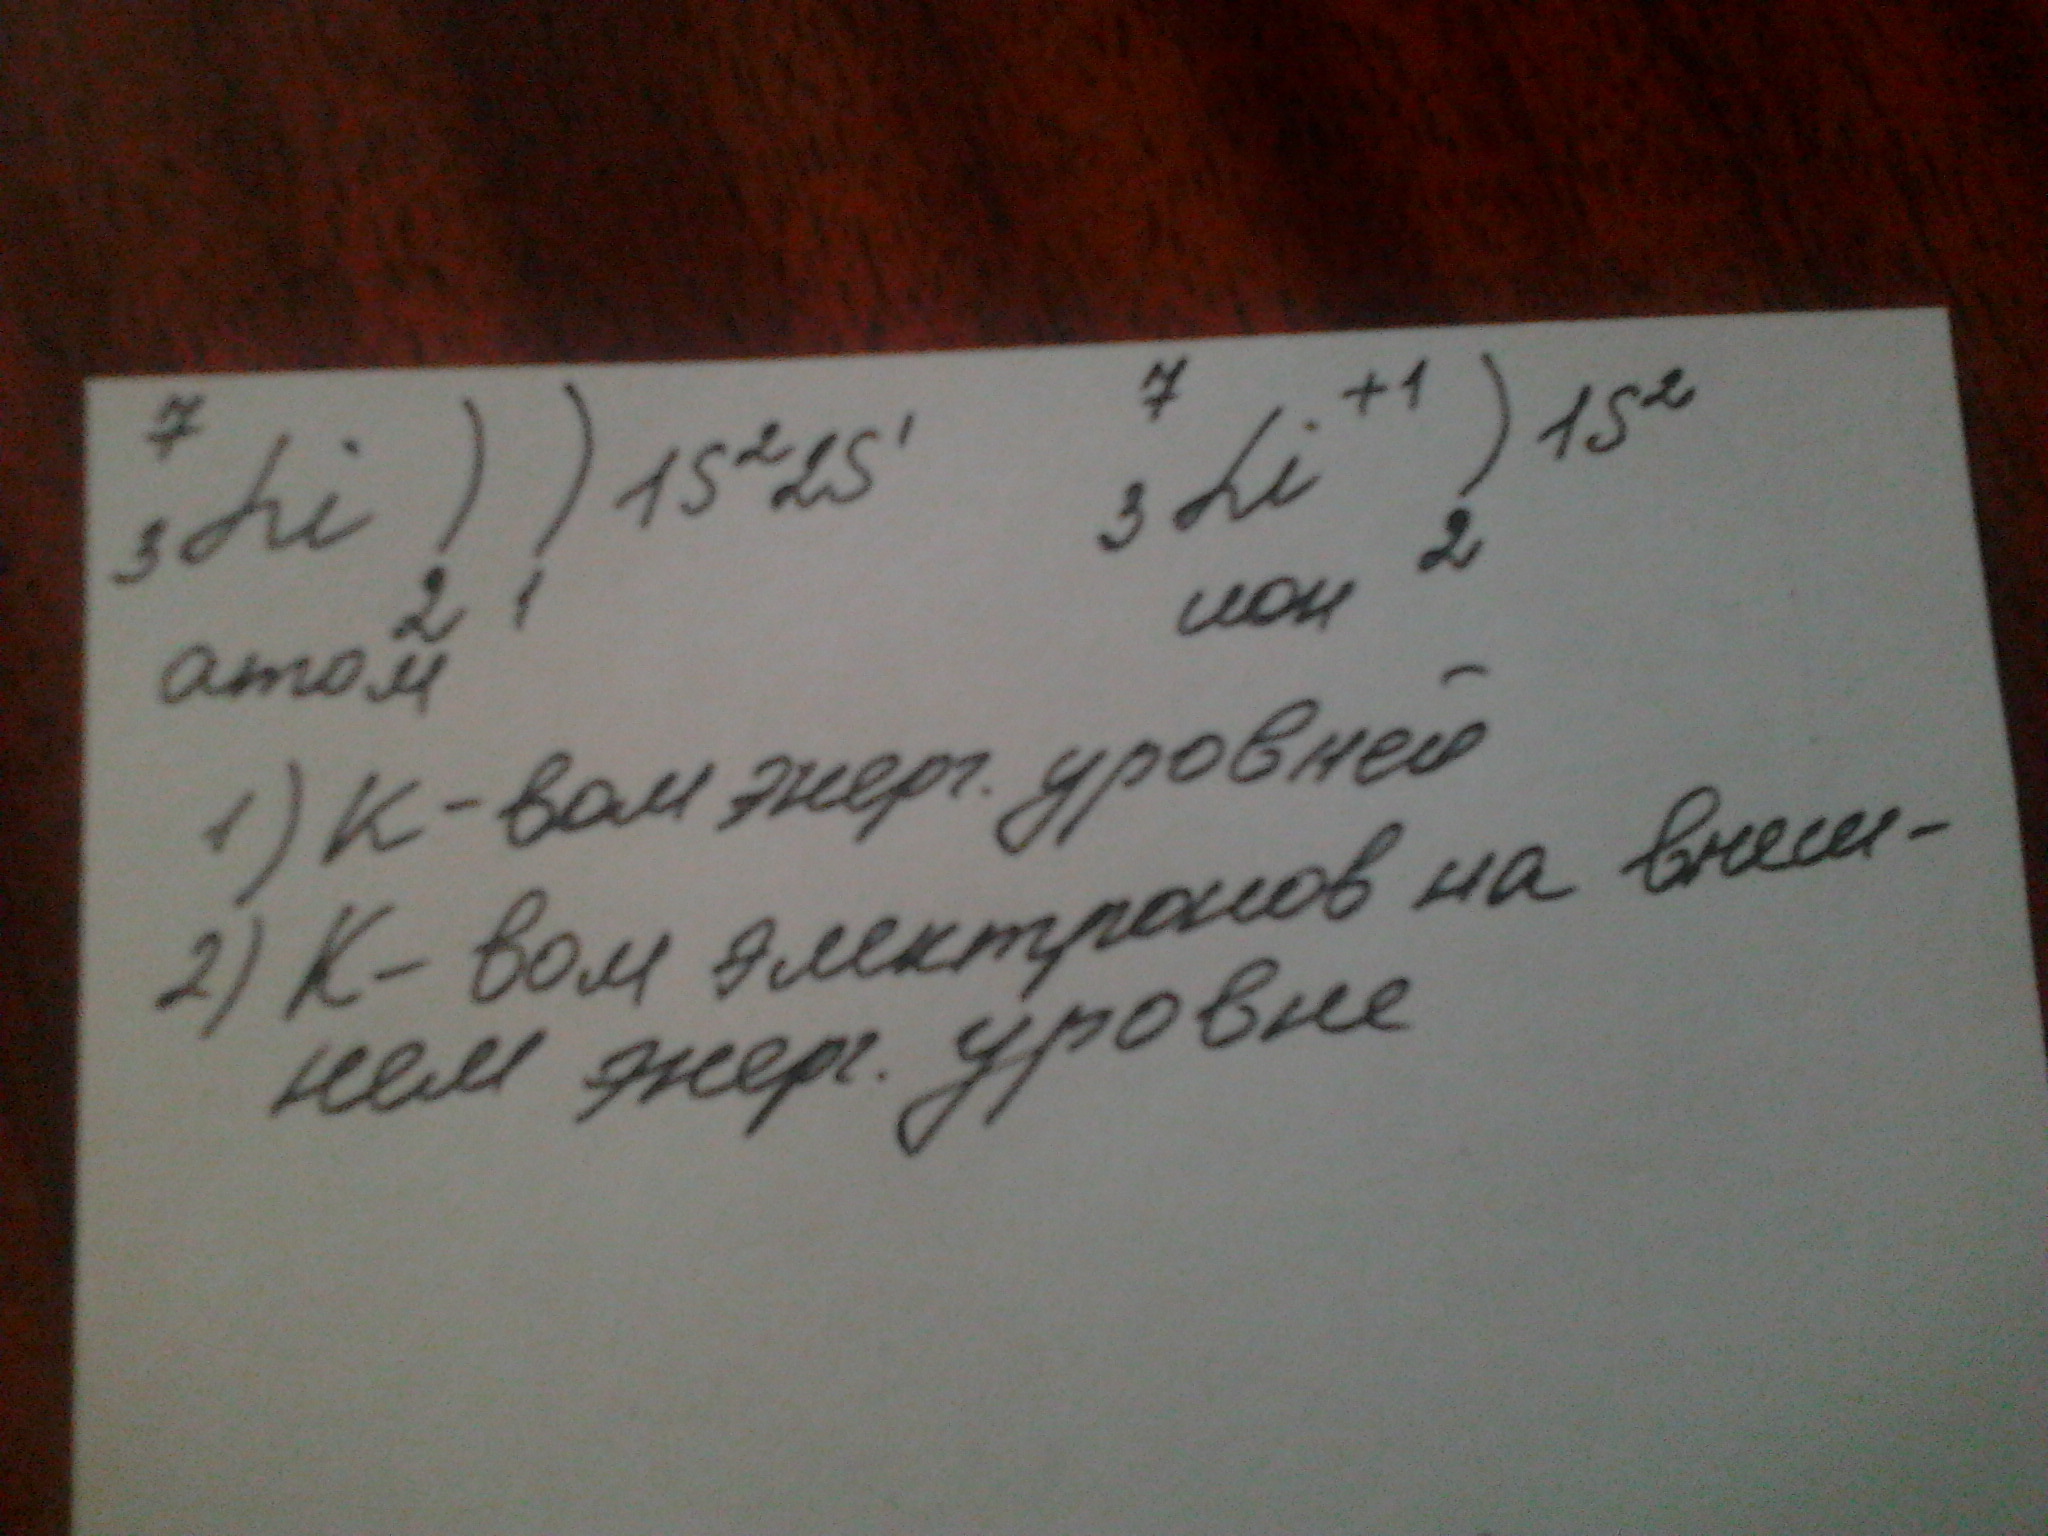 ⁷₃Li ) ) 1S²2S¹ ⁷₃Li⁺¹ ) 1S²
2 1 2
атом ион
1) К-вом энерг. уровней
2) К-вом электронов на внеш-
нем энерг. уровне